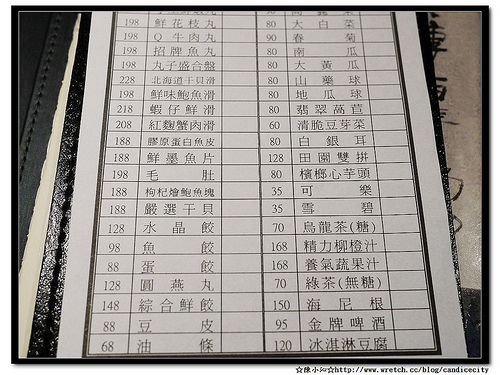 198 鮮花枝丸 80 大白菜
198 Q牛肉丸 90 春菊
198 招牌魚丸 80 南瓜
198 丸子盛合盤 80 大黃瓜
228 北海道干貝滑 80 山藥球
198 鮮味鮑魚滑 80 地瓜球
218 蝦仔鮮滑 80 翡翠萵苣
208 紅麴蟹肉滑 60 清脆豆芽菜
188 膠原蛋白魚皮 80 白銀耳
188 鮮墨魚片 128 田園雙拼
198 毛肚 80 檳榔心芋頭
188 枸杞燴鮑魚塊 35 可樂
188 嚴選干貝 35 雪碧
128 水晶餃 70 烏龍茶(糖)
98 魚餃 168 精力柳橙汁
88 蛋餃 168 養氣蔬果汁
128 圓燕丸 70 綠茶(無糖)
148 綜合鮮餃 150 海尼根
88 豆皮 95 金牌啤酒
68 油條 120 冰淇淋豆腐
☆陳小沁☆http://www.wretch.cc/blog/candicecity